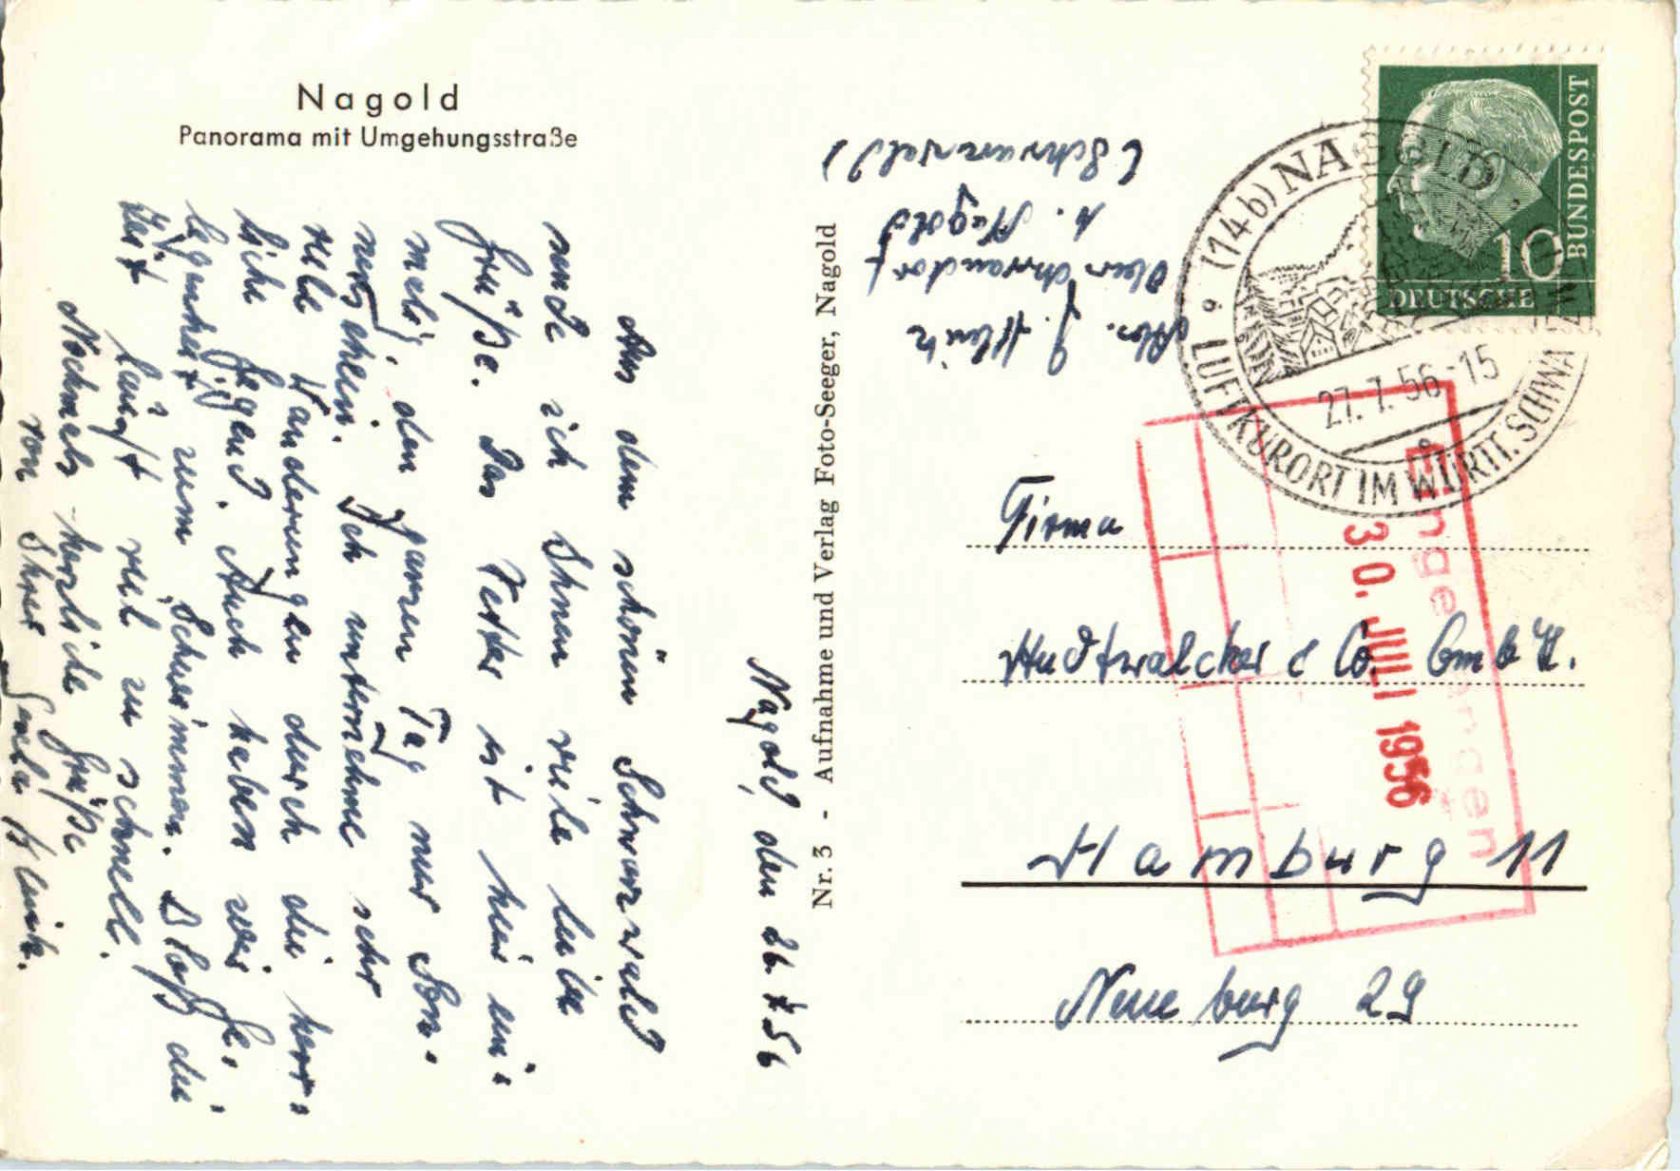 Nagold
Panorama mit Umgehungsstraße
Nagold, den 26.7.56
Aus dem schönen Schwarzwald
sende ich Ihnen viele liebe
Grüße. Das Wetter ist hier ein-
malig, den ganzen Tag nur Son-
nenschein. Ich unternehme sehr
viele Wanderungen durch die herr-
liche Gegend. Auch haben wir Ge-
legenheit zum Schwimmen. Bloß die
Zeit läuft viel zu schnell.
Nochmals herzliche Grüße
von Ihrer
Nr. 3 - Aufnahme und Verlag Foto-Seeger, Nagold
Abs. J.
Oberschwandorf
b. Nagold
(Schwarzwald)
DEUTSCHE
BUNDESPOST
10
(14b) NAGOLD
27.7.56-15
LUFTKURORT IM WÜRTT. SCHWARZWALD
Eingegangen
30. JULI 1956
Firma
Hudtwalcker & Co. GmbH.
Hamburg 11
Neueburg 29